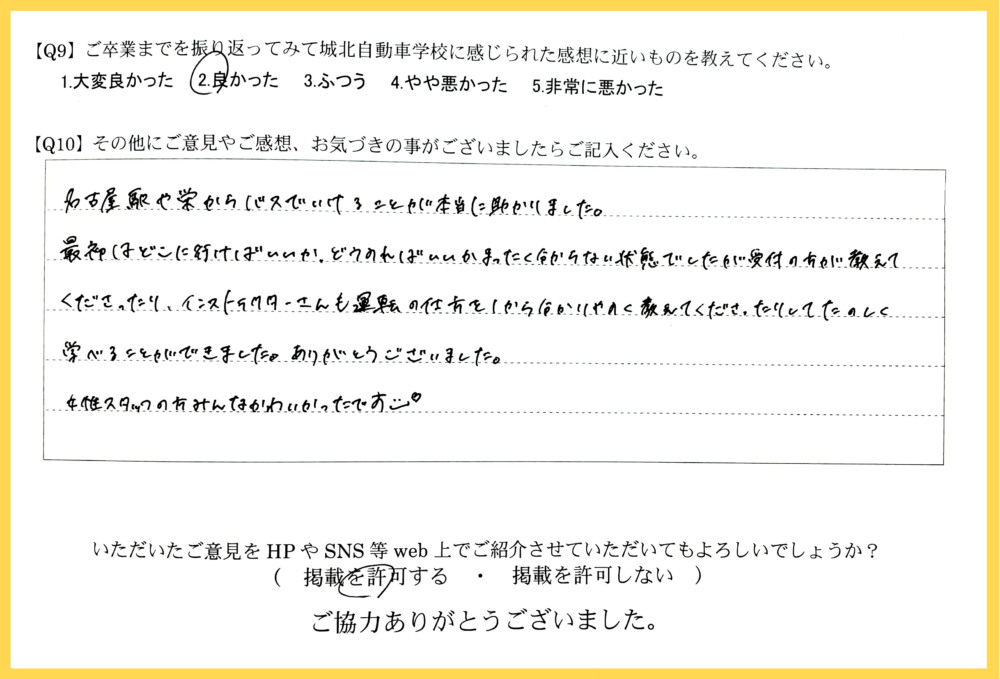 【Q9】ご卒業までを振り返ってみて城北自動車学校に感じられた感想に近いものを教えてください。
1.大変良かった 2.良かった 3.ふつう 4.やや悪かった 5.非常に悪かった
【Q10】その他にご意見やご感想、お気づきの事がございましたらご記入ください。
名古屋駅や栄からバスでいけることが本当に助かりました。
最初はどこに行けばいいか、どうのればいいかまったく分からない状態でしたが受付の方が教えて
くださったり、インストラクターさんも運転の仕方を1から分かりやすく教えてくださったりしてたのしく
学べることができました。ありがとうございました。
女性スタッフの方みんなかわいかったです♡
いただいたご意見をHPやSNS等web上でご紹介させていただいてもよろしいでしょうか？
( 掲載を許可する ・ 掲載を許可しない )
ご協力ありがとうございました。